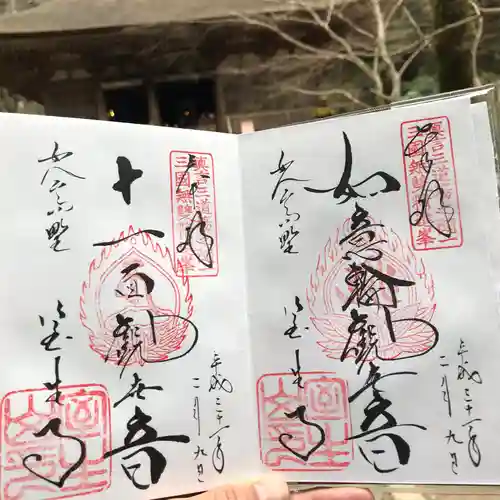 奉拝
如意輪観世音
女人高野
室生寺
平成三十一年
二月九日
奉拝
十一面観世音
女人高野
室生寺
平成三十一年
二月九日